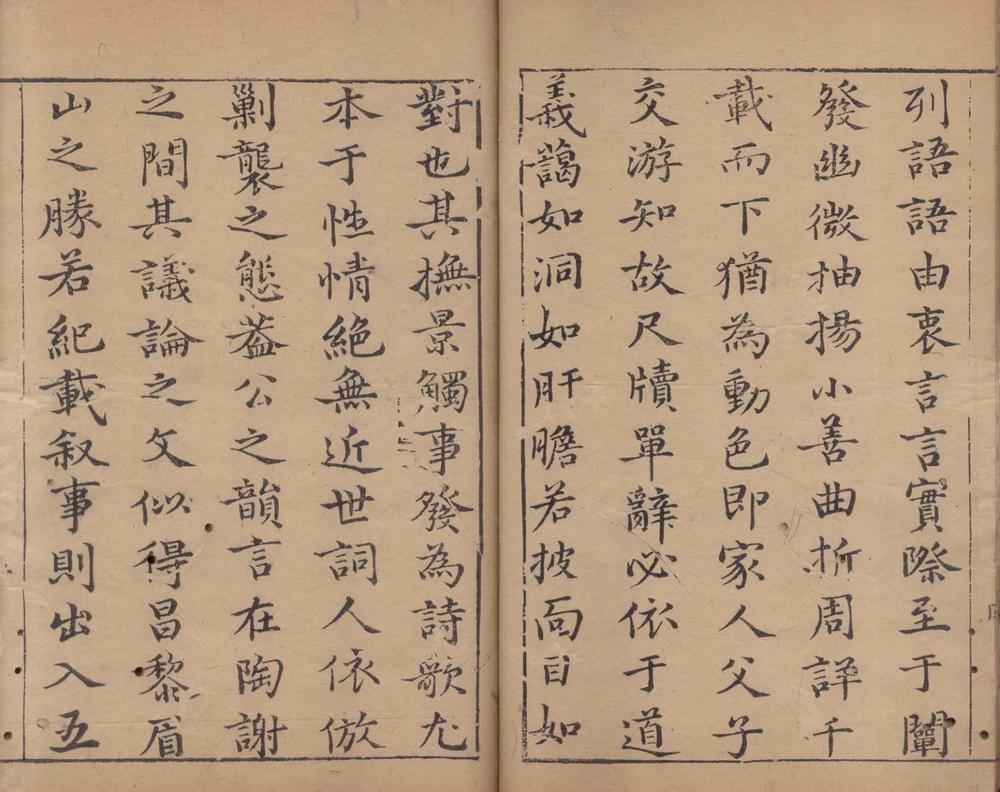 列語語由衷言言實際至于闡
發幽微抽揚小善曲折周詳千
載而下猶為動色即家人父子
交游知故尺牘單辭必依于道
義藹如洞如肝膽若披面目如
對也其撫景觸事發為詩歌尤
本于性情絶無近世詞人依倣
剿襲之態葢公之韻言在陶謝
之間其議論之文似得昌黎眉
山之勝若紀載叙事則出入五